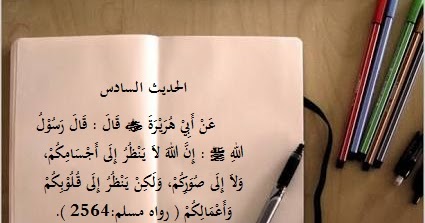 الحديث السادس
عَنْ أَبِيْ هُرَيْرَةَ ﷺ قَالَ : قَالَ رَسُوْلُ
اللهِ ﷺ : إِنَّ اللهَ لاَ يَنْظُرُ إِلَى أَجْسَامِكُمْ،
وَلاَ إِلَى صُوَرِكُمْ، وَلَكِنْ يَنْظُرُ إِلَى قُلُوْبِكُمْ
وَأَعْمَالِكُمْ ( رواه مسلم:2564 ).